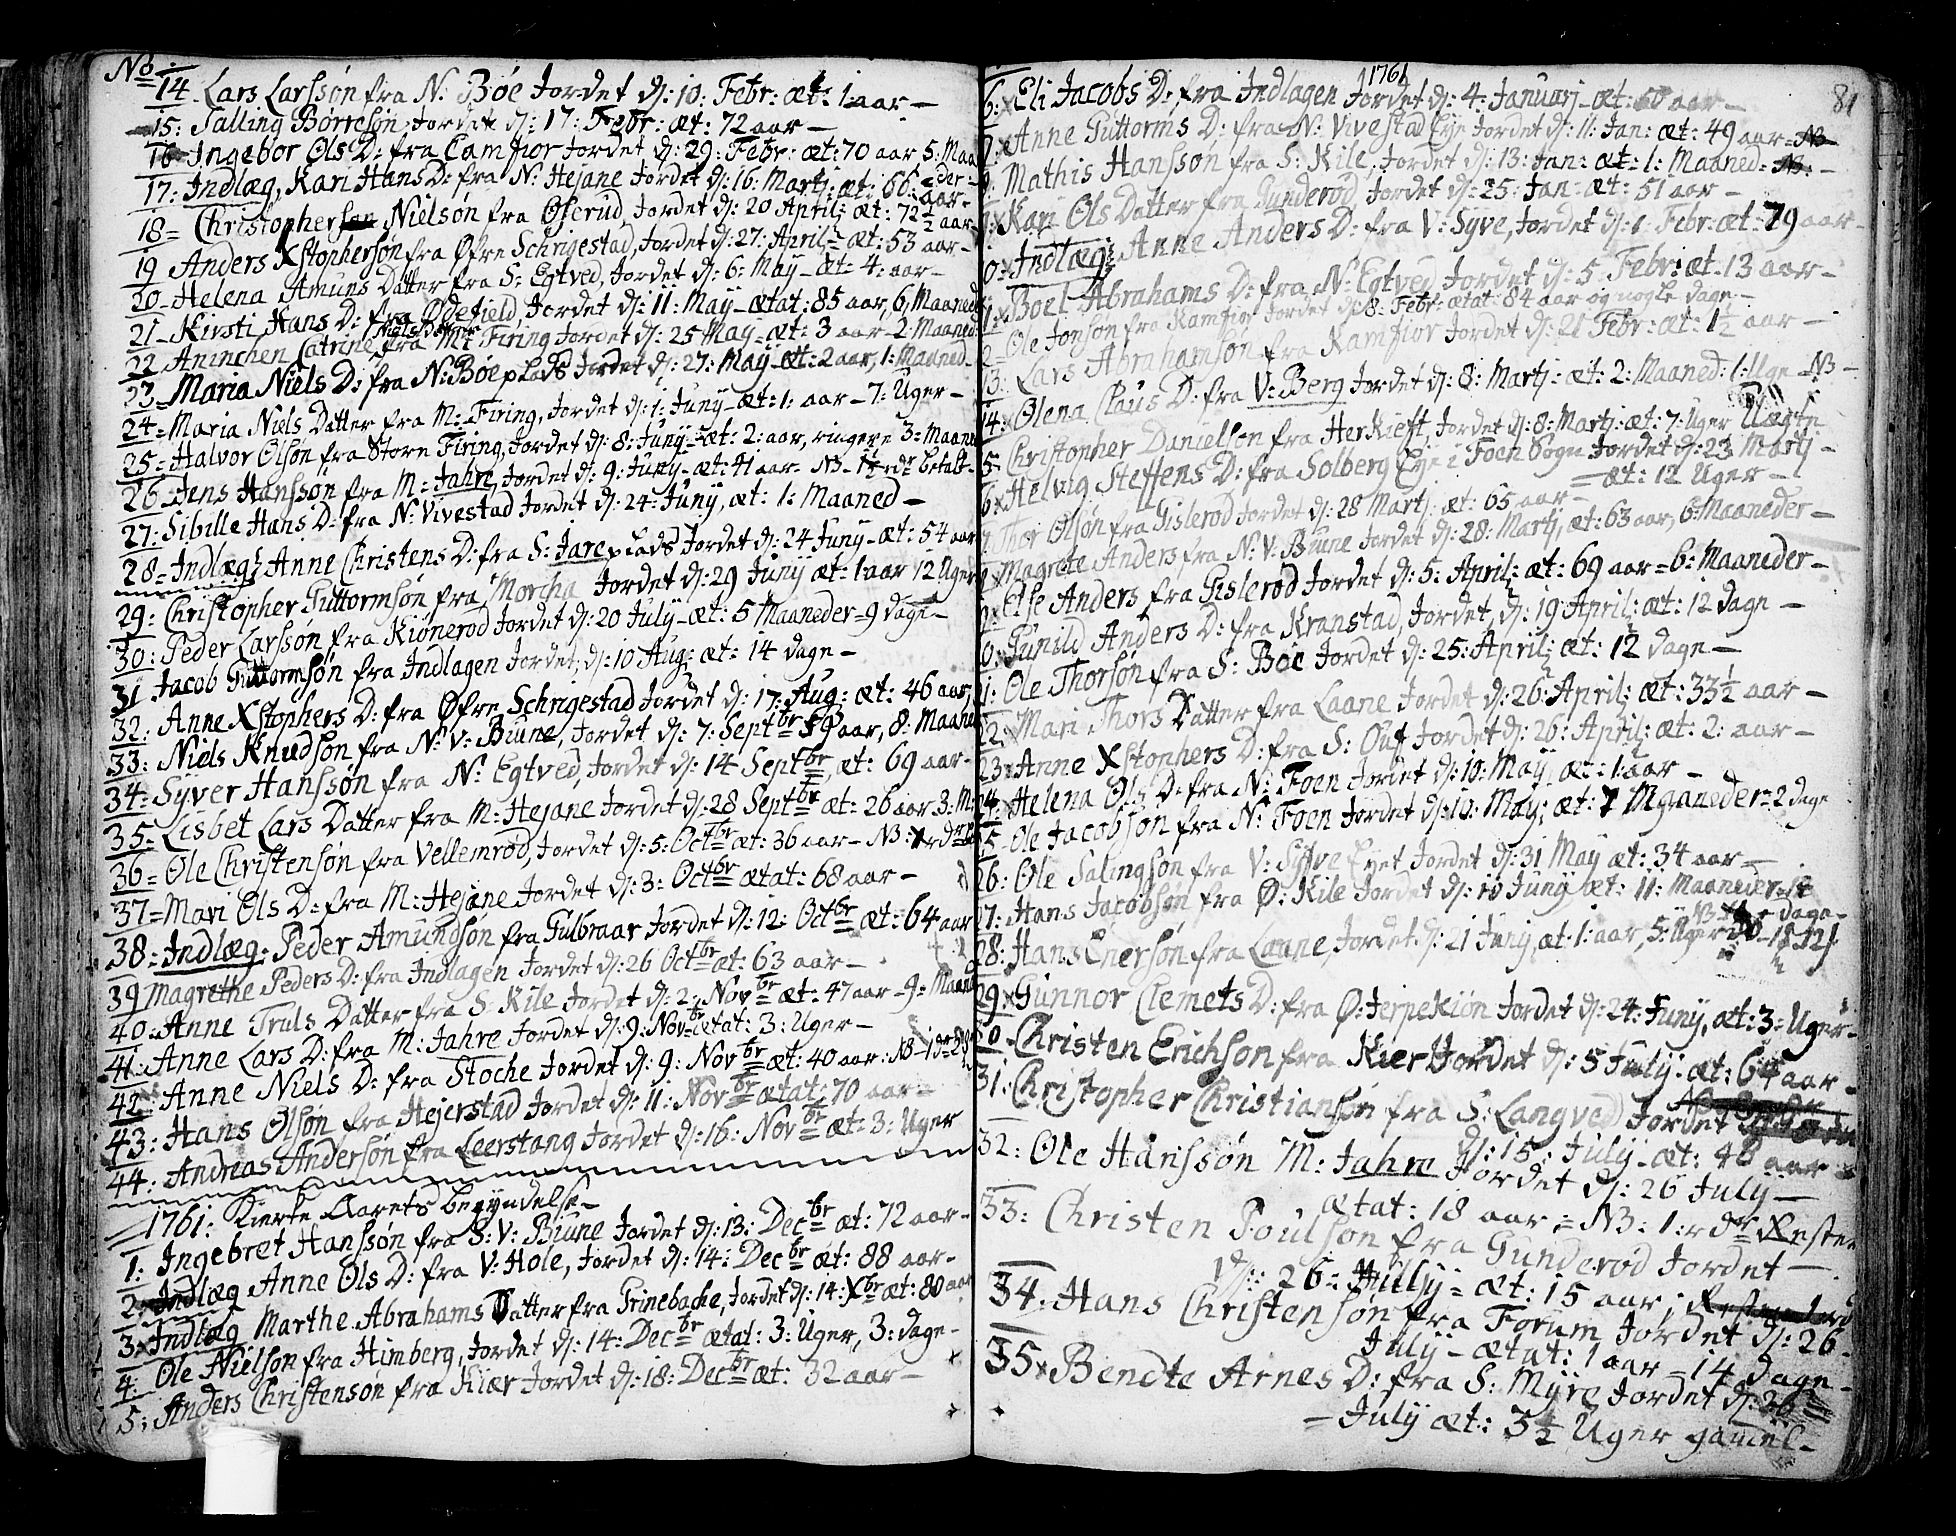 No
14. Lars Larssøn fra N: Bøe Jordet d: 10: Febr: æt: 1 aar —
15: Salling Børresøn, Jordet d: 17: Febr: æt: 72 aar —
16 Ingebor Ols D: fra Camfior Jordet d: 29: Febr: æt: 70 aar 5: Maa
neder -
17: Indlæg, Kari Hans D: fra N: Hejane Jordet d: 16: Martj: æt: 66: aar -
18 = Christopher Nielsøn fra Øserud, Jordet d: 20 April: æt: 72 1/2 aar -
19 Anders Xstophersøn fra Øfre Schrigestad, Jordet d: 27: April: æt: 53 aar -
20 - Helena Amuns Datter fra S: Egtved, Jordet d: 6: May - æt: 4: aar -
21 - Kirsti Hans D: fra Ødefield Jordet d: 11: May - ætat: 85 aar, 6: Maaned
22 Aninchen Catrine Niels Datter fra M: Firing Jordet d: 25 May - æt: 3 aar - 2: Maaned:
23 Maria Niels D: fra N: Bøe plads Jordet d: 27: May - æt: 2 aar, 1: Maaned -
24 = Maria Niels Datter fra M: Firing, Jordet d: 1: Juny - æt: 1: aar - 7: Uger -
25 = Halvor Olsøn fra Store Firing, Jordet d: 8: Juny - æt: 2: aar, ringere 3: Maane
26 Jens Hanssøn fra M: Jahre, Jordet d: 9: Juny - æt: 41 aar - NB - 1 1/2 rdr betalt -
27: Sibille Hans D: fra N: Vivestad Jordet d: 24: Juny, æt: 1: Maaned —
28 = Indlæg: Anne Christens D: fra S: Jare plads Jordet d: 24 Juny - æt: 54 aar
29: Christopher Guttormsøn fra Morcha Jordet d: 29 Juny æt: 1 aar 12 Uger
30: Peder Larssøn fra Kiønerød Jordet d: 20 July - æt: 5 Maaneder = 9 dage -
31 Jacob Guttormsøn fra Indlagen Jordet d: 10 Aug: æt: 14 dage —
32: Anne Xstophers D: fra Øfre Schrigestad Jordet d: 17: Aug: æt: 46 aar,
33: Niels Knudsøn fra N: V: Biune, Jordet d: 7: Septbr 59 aar, 8: Maane
34 = Syver Hanssøn fra N: Egtved, Jordet d: 14 Septbr, æt: 69 aar -
35 = Lisbet Lars Datter fra M: Hejane Jordet d: 28 Septbr æt: 26 aar 3: M:
36 = Ole Christensøn fra Vellemrød, Jordet d: 5: Octbr æt: 36 aar - NB:
37 = Mari Ols D: fra M: Hejane Jordet d: 3: Octbr ætat: 68 aar —
38: Indlæg: Peder Amundsøn fra Gulbraar Jordet d: 12: Octbr æt: 64 aar
39 Magrethe Peders D: fra Indlagen Jordet d: 26 Octbr æt: 63 aar —
40 = Anne Truls Datter fra S: Kile Jordet d: 2: Novbr æt: 47 aar - 9 = Maan
41. Anne Lars D: fra M: Jahre Jordet d: 9: Novbr ætat: 3: Uger —
42 - Anne Niels D: fra Stoche Jordet d: 9: Novbr æt: 40 aar: NB - 1
43: Hans Olsøn fra Hejerstad Jordet d: 11: Novbr ætat: 70 aar -
44: Andreas Andersøn fra Leerstang Jordet d: 16: Novbr æt: 3: Uger
1761: Kierke Aarets begyndelse -
1: Ingebret Hanssøn fra S: V: Biune Jordet d: 13: Decbr æt: 72 aar -
2: Indlæg Anne Ols D: fra V: Hole, Jordet d: 14: Decbr æt: 88 aar -
3: Indlæg Marthe Abrahams Datter fra Grinebache, Jordet d: 14: Xbr æt: 80 aar
4: Ole Nielsøn fra Himberg, Jordet d: 14: Decbr ætat: 3: Uger, 3: dage -
5: Anders Christensøn fra Kiær Jordet d: 18: Decbr æt: 32 aar —
1761
81
6: x Eli Jacobs D: fra Indlagen Jordet d: 4: Januarj - æt: 50 aar -
7 x Anne Guttorms D: fra N: Vivestad Eye Jordet d: 11: Jan: æt: 49 aar - NB
8. Mathis Hanssøn fra S: Kile, Jordet d: 13: Jan: æt: 1: Maaned - NB -
9: x Kari Ols Datter fra Gunderød, Jordet d: 25: Jan: æt: 51 aar -
0: x Indlæg: Anne Anders D: fra V: Syve, Jordet d: 1: Febr: æt: 79 aar -
1: x Boel Abrahams D: fra N: Egtved Jordet d: 5 Febr: æt - 13 aar -
2 - Ole Jonsøn fra Kamfior Jordet d: 8: Febr: ætat: 84 aar og nogle dage -
3: Lars Abrahamsøn fra Kamfior Jordet d: 21 Febr: æt: 1 1/2 aar -
14: x Olena Claus D: fra V: Berg Jordet d: 8: Martj: æt: 2: Maaned: 1: Uge - NB -
5: Christopher Danielsøn fra Herkieft, Jordet d: 8: Martj: æt: 7: Uger Uægte
6 x Helvig Steffens D: fra Solberg Eye i Foen Sogn Jordet d: 23 Martj -
= æt: 12 Uger -
7. Thor Olsøn fra Gislerød Jordet d: 28 Martj: æt: 65 aar -
8 x Magrete Anders fra N: V: Biune Jordet d: 28: Martj, æt: 63 aar, 6: Maaneder -
9 x Else Anders fra Gislerød Jordet d: 5: April: æt: 69 aar = 6: Maaneder -
0: x Gunild Anders D: fra Kranstad, Jordet, d: 19 April: æt: 12 dage —
1: Ole Thorsøn fra S: Bøe Jordet d: 25: April: æt: 12 dage —
22: Mari Thors Datter fra Laane Jordet d: 26: April: æt: 33 1/2 aar —
23: Anne Xstophers D: fra S: Ouf Jordet d: 26: April: æt: 2: aar —
24: x Helena Ols D: fra N: Foen Jordet d: 10: May, æt: 1: aar —
25 - Ole Jacobsøn fra N: Foen Jordet d: 10: May: æt: 7 Maaneder = 2 dage
26: Ole Salingsøn fra V: Syfve Eyet Jordet d: 31 May æt: 34 aar —
27: Hans Jacobsøn fra Ø: Kile Jordet d: 10 Juny æt: 11: Maaneder
dage -
28: Hans Enersøn fra Laane, Jordet d: 21 Juny, æt: 1: aar, 5: Uger
29: x Gunnor Clemets D: fra Ø: Jerpekiøn Jordet d: 24: Juny, æt: 3: Uger -
30 - Christen Erichsøn fra Kier Jordet d: 5 July: æt: 64 aar -
31: Christopher Christiansøn fra S: Langved Jordet
d: 15: July - æt: 48 aar
32: Ole Hanssøn M: Jahre Jordet d: 26 July —
ætat: 18 aar = NB: 1: rdr Rester
33: Christen Poulsøn fra Gunderød Jordet —
d: 26 = July = æt: 15 aar;
34: Hans Christensøn fra Forum Jordet d: 26 -
July - ætat: 1 aar - 14 dage -
35 x Bendte Arnes D: fra S: Myre Jordet d: 26
= July æt: 3 1/2 Uger gamel -